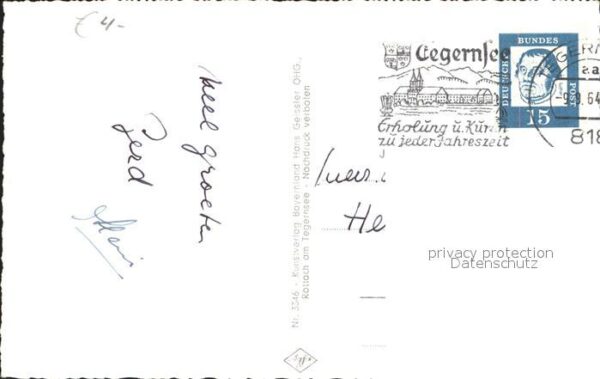 € 4-
veel groeten
Gerd
Nr. 3346 - Kunstverlag Bayernland Hans Gessler OHG.,
Rottach am Tegernsee - Nachdruck verboten
Tegernsee
Erholung u. Kuren
zu jeder Jahreszeit
DEUTSCHE
BUNDES
POST
15
TEGERNSEE
2a
64
818
He
privacy protection
Datenschutz